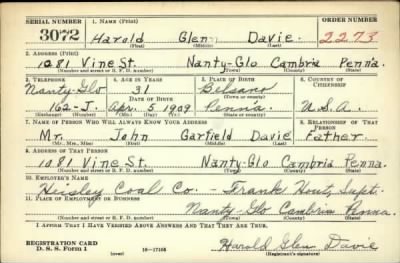 SERIAL NUMBER 1. NAME (Print) ORDER NUMBER
3072 Harold Glenn Davie. 2273
(First) (Middle) (Last)
2. ADDRESS (Print)
1081 Vine St. Nanty-Glo Cambria Penna.
(Number and street or R. F. D. number) (Town) (County) (State)
3. TELEPHONE 4. AGE IN YEARS 5. PLACE OF BIRTH 6. COUNTRY OF CITIZENSHIP
Nanty-Glo 31 Belsano
DATE OF BIRTH
162-J. Apr. 5 1909 Penna. U.S.A.
(Exchange) (Number) (Mo.) (Day) (Yr.) (State or country)
7. NAME OF PERSON WHO WILL ALWAYS KNOW YOUR ADDRESS 8. RELATIONSHIP OF THAT PERSON
Mr. John Garfield Davie Father.
(Mr., Mrs., Miss) (First) (Middle) (Last)
9. ADDRESS OF THAT PERSON
1081 Vine St. Nanty-Glo Cambria Penna.
(Number and street or R. F. D. number) (Town) (County) (State)
10. EMPLOYER'S NAME
Heisley Coal Co. - Frank Hout, Supt.
11. PLACE OF EMPLOYMENT OR BUSINESS
Nanty-Glo Cambria Penna.
(Number and street or R. F. D. number) (Town) (County) (State)
I AFFIRM THAT I HAVE VERIFIED ABOVE ANSWERS AND THAT THEY ARE TRUE.
REGISTRATION CARD
D. S. S. Form 1 (over) 16-17105 Harold Glenn Davie
(Registrant's signature)